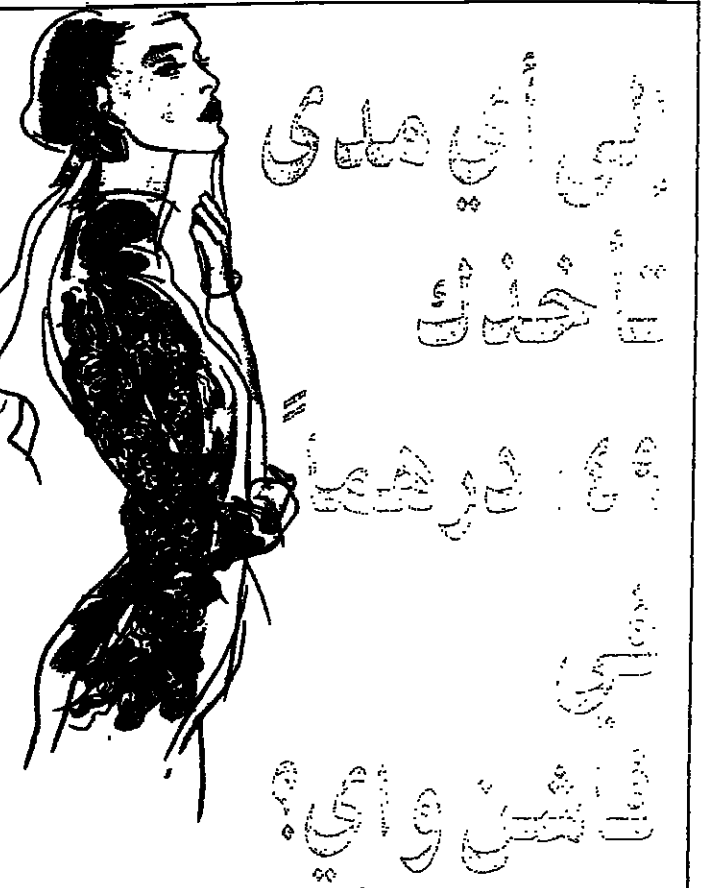 إلى أي مدى
تأخذك
٤٩ درهماً
في
فاشن واي؟